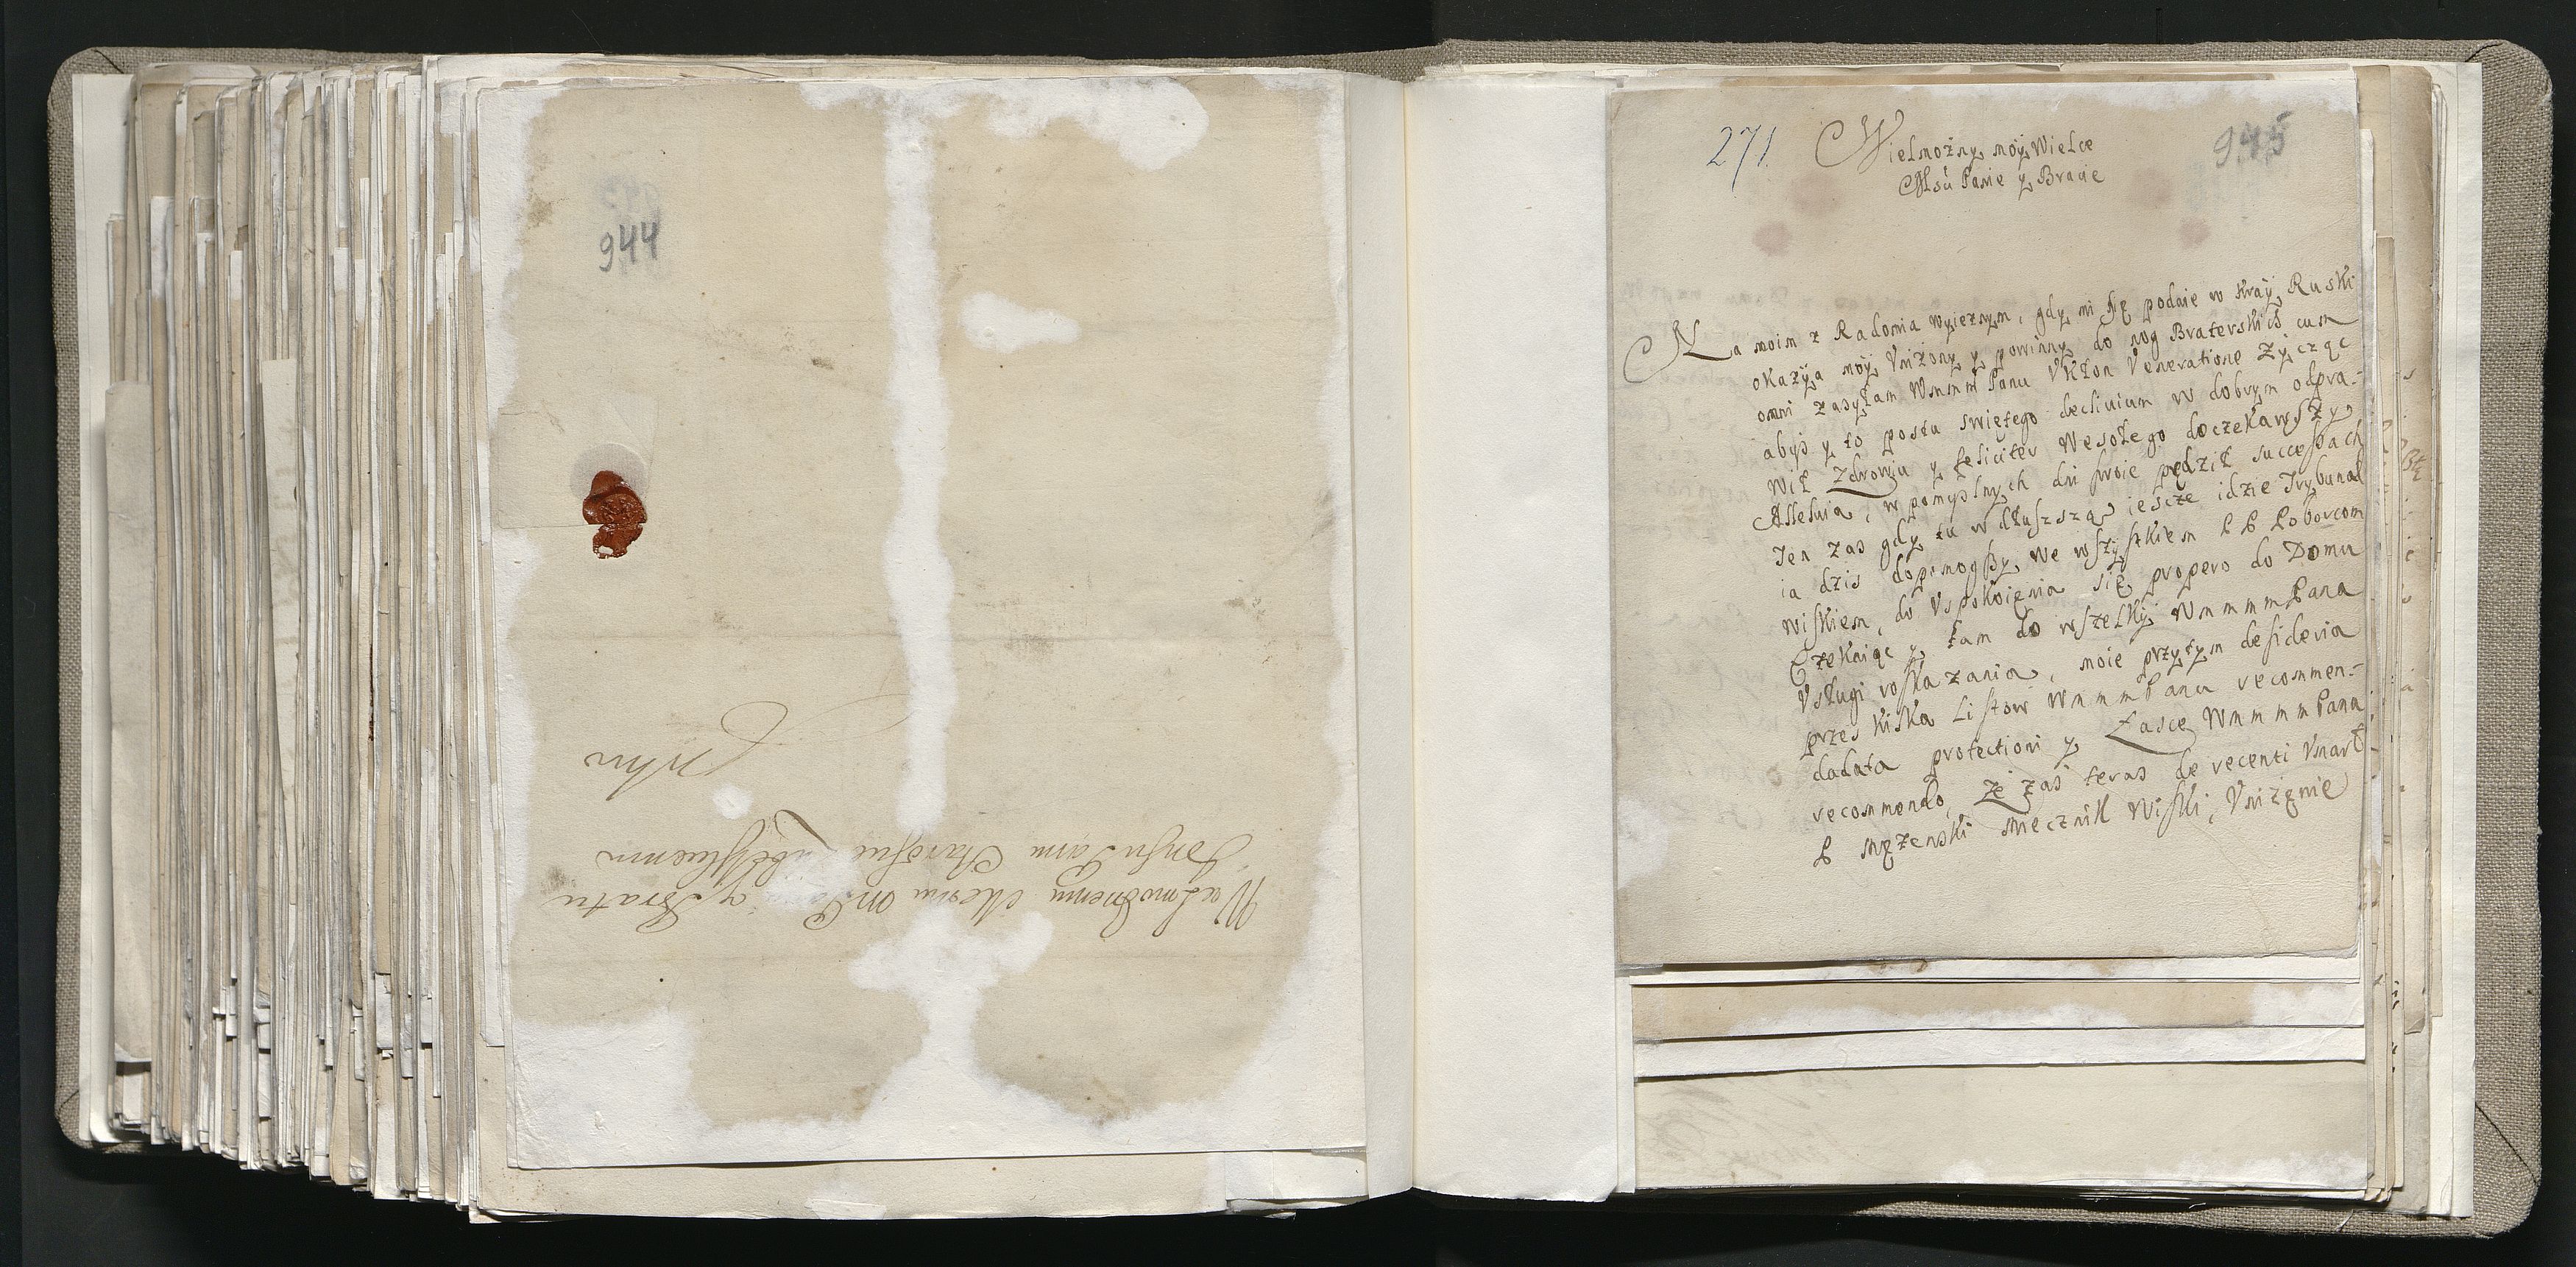 944
Wielmożnemu Memu
y Bratu
Panu Staroscie
271.
945
Wielmożny moÿ Wielce
Msċi Panie y Bracie
Na moim z Radomia wyieznym, gdy mi się podaie w Kraÿ Ruski
okazÿa moÿ Vniżony y powinny do nog Braterskich cum
omni zasyłam Wmmm Panu Vkłon Veneratione Zÿcząc
abyś y to postu swiętego decliuium w dobrym odpra:
wił Zdrowiu y feliciter Wesołego doczekawszy
Alleluia, w pomyslnych dni swoie pędził successach
Ten zas gdy tu w dłuszszą iescze idzie Trybunał
ia dzis dopomogszy we wszystkiem P P Poborcom
wiskiem, do Vspokoienia się propero do Domu
Czekaiąc y tam do wszelkÿ WmmmmPana
Vsługi roskazania, moie przytym desideria
przes kilka Listow WmmmPanu recommen:
dadata protectioni y Łasce WmmmmPana
recommendo, że zaś teras de recenti Vmarł
P Mężenski Miecznik Wiski, Vniżenie